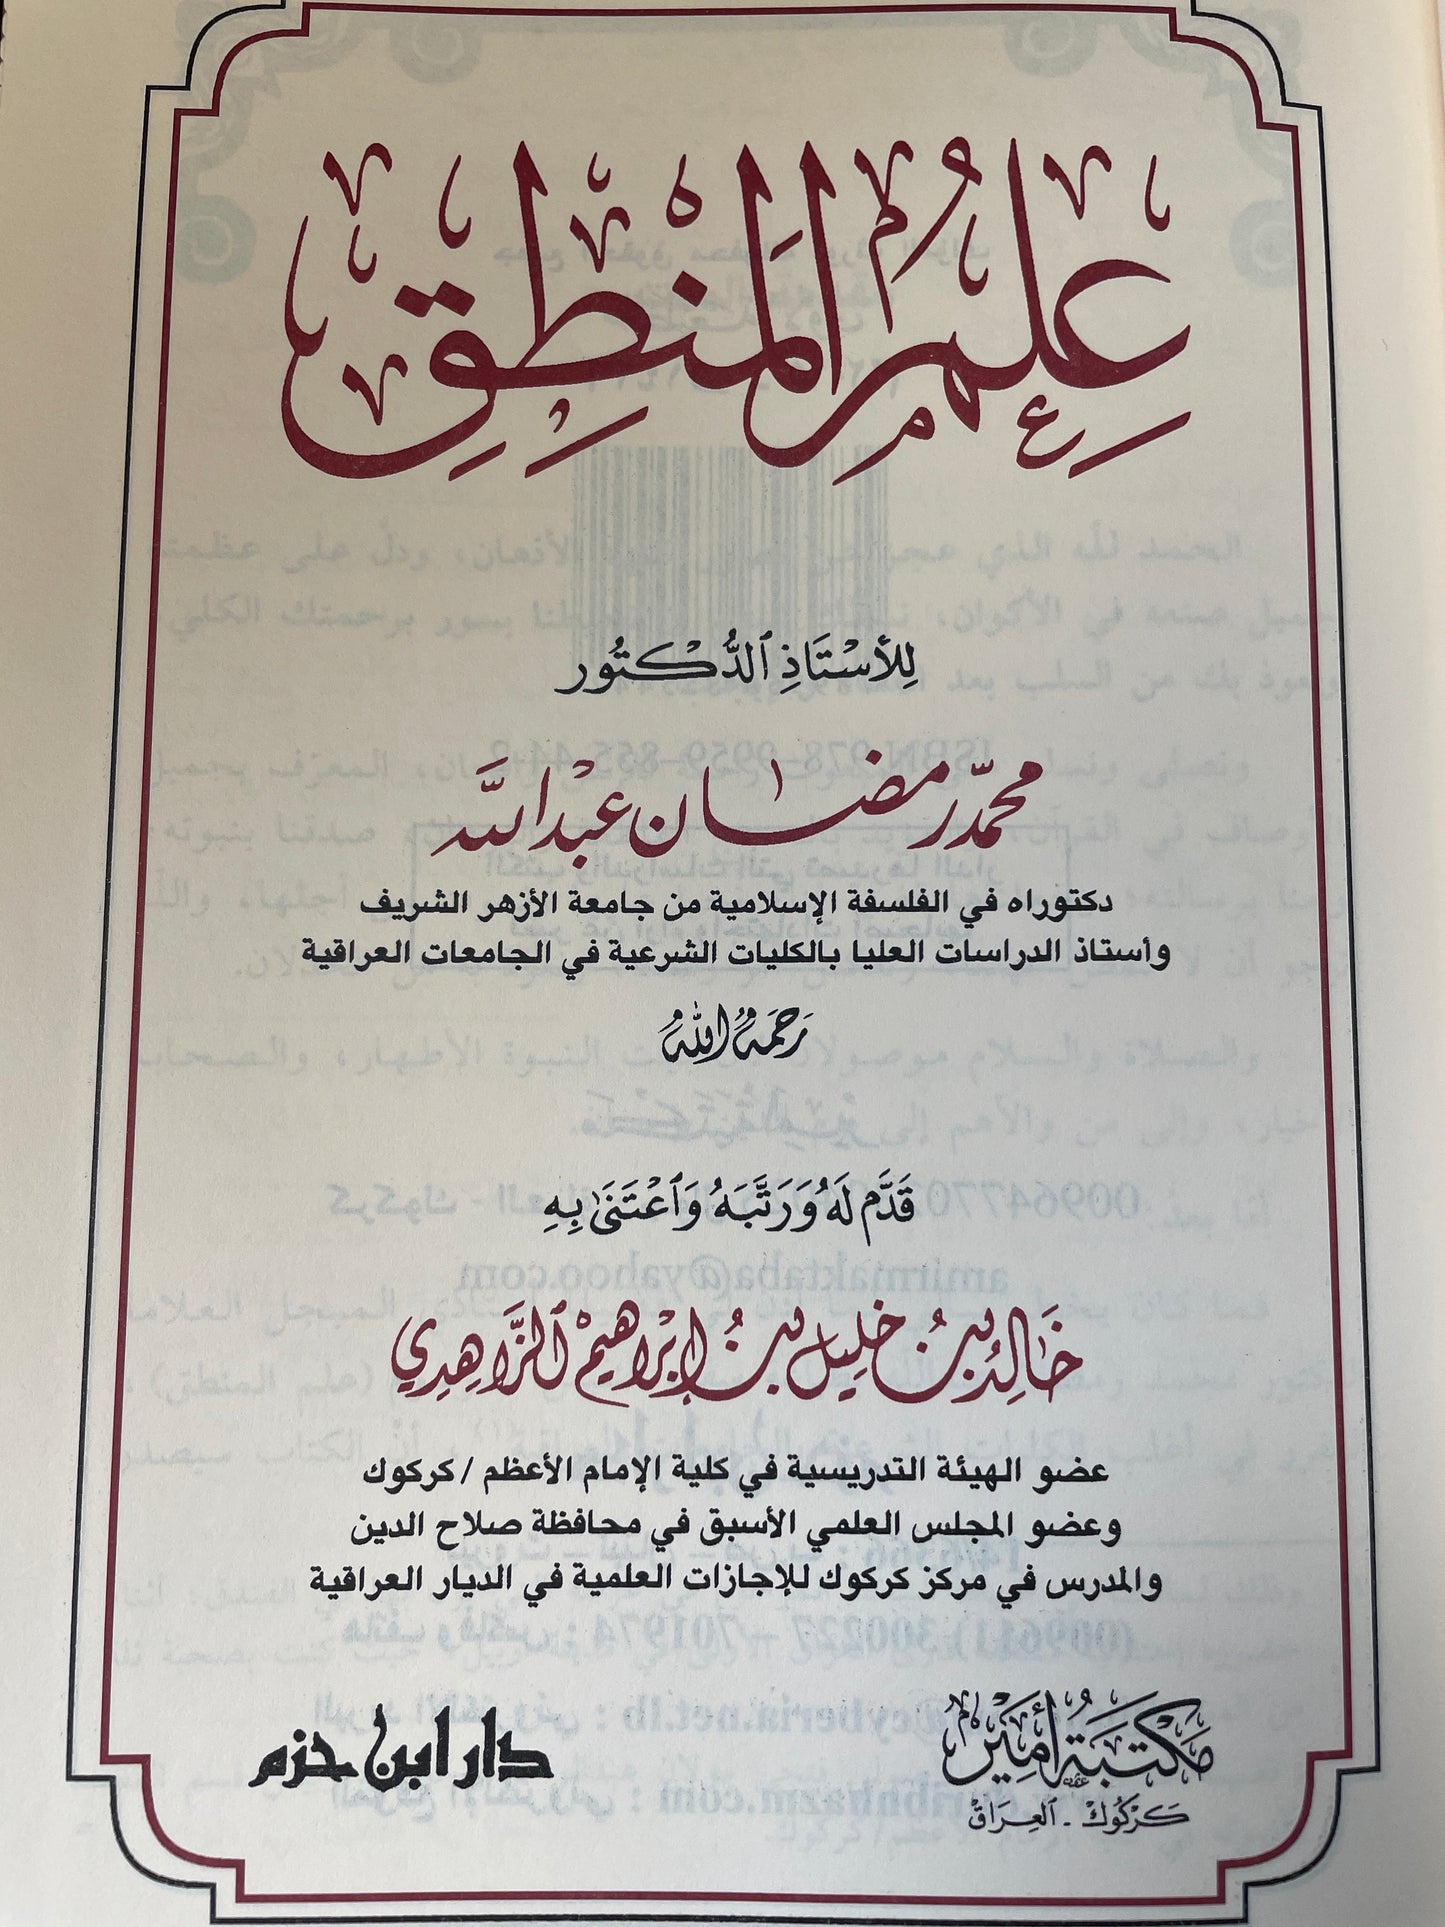 عِلْمُ المَنْطِقِ
لِلأُسْتَاذِ ٱلدُّكْتُور
محمّد رمضان عبد الله
دكتوراه في الفلسفة الإسلامية من جامعة الأزهر الشريف
وأستاذ الدراسات العليا بالكليات الشرعية في الجامعات العراقية
رَحِمَهُ اللهُ
قَدَّم لَهُ وَرَتَّبَهُ وَٱعْتَنَىٰ بِهِ
خَالِدُ بْنُ خَلِيل بْنُ إِبْرَاهِيمْ ٱلزَّاهِدِي
عضو الهيئة التدريسية في كلية الإمام الأعظم / كركوك
وعضو المجلس العلمي الأسبق في محافظة صلاح الدين
والمدرس في مركز كركوك للإجازات العلمية في الديار العراقية
مَكْتَبَةُ أَمِير
كَرْكُوكْ - ٱلعِرَاقْ
دار ابن حزم